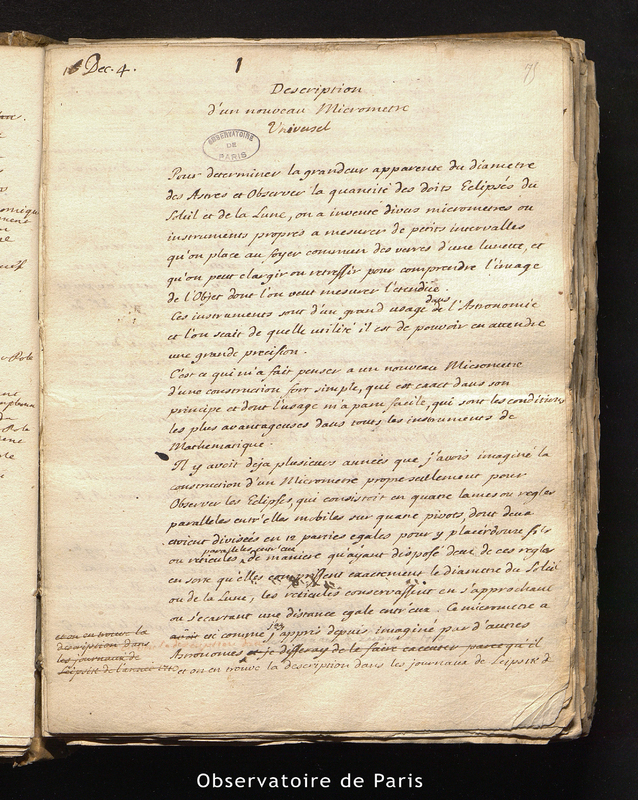 Dec. 4.
1
Description
d'un nouveau Micrometre
Universel
OBSERVATOIRE
DE
PARIS
Pour determiner la grandeur apparente du diametre
des Astres et Observer la quantité des doits Eclipsés du
Soleil et de la Lune, on a inventé divers micrometres ou
instruments propres a mesurer de petits intervalles
qu'on place au foyer commun des verres d'une lunette, et
qu'on peut elargir ou retressir pour comprendre l'image
de l'Objet dont l'on veut mesurer l'etendue.
Ces instruments sont d'un grand usage dans l'Astronomie
et l'on scait de quelle utilité il est de pouvoir en attendre
une grande precision.
C'est ce qui m'a fait penser a un nouveau Micrometre
d'une construction fort simple, qui est exact dans son
principe et dont l'usage m'a paru facile, qui sont les conditions
les plus avantageuses dans tous les instruments de
Mathematique.
Il y avoit deja plusieurs années que j'avois imaginé la
construction d'un Micrometre propre seulement pour
Observer les Eclipses, qui consistoit en quatre lames ou regles
paralleles entr'elles mobiles sur quatre pivots, dont deux
etoient divisées en 12 parties egales pour y placer douze fils
ou reticules paralleles entr'eux de maniere qu'ayant disposé deux de ces regles
en sorte qu'elles comprissent exactement le diametre du Soleil
ou de la Lune, les reticules conservassent en s'approchant
ou s'ecartant une distance egale entr'eux. Ce micrometre a
eté comme j'ay appris depuis imaginé par d'autres
Astronomes et je differay de le faire executer parce qu'il
et on en trouve la description dans les journaux de Leipsik d
et on en trouve la
description dans
les journaux de
Leipsik de l'année
Observatoire de Paris